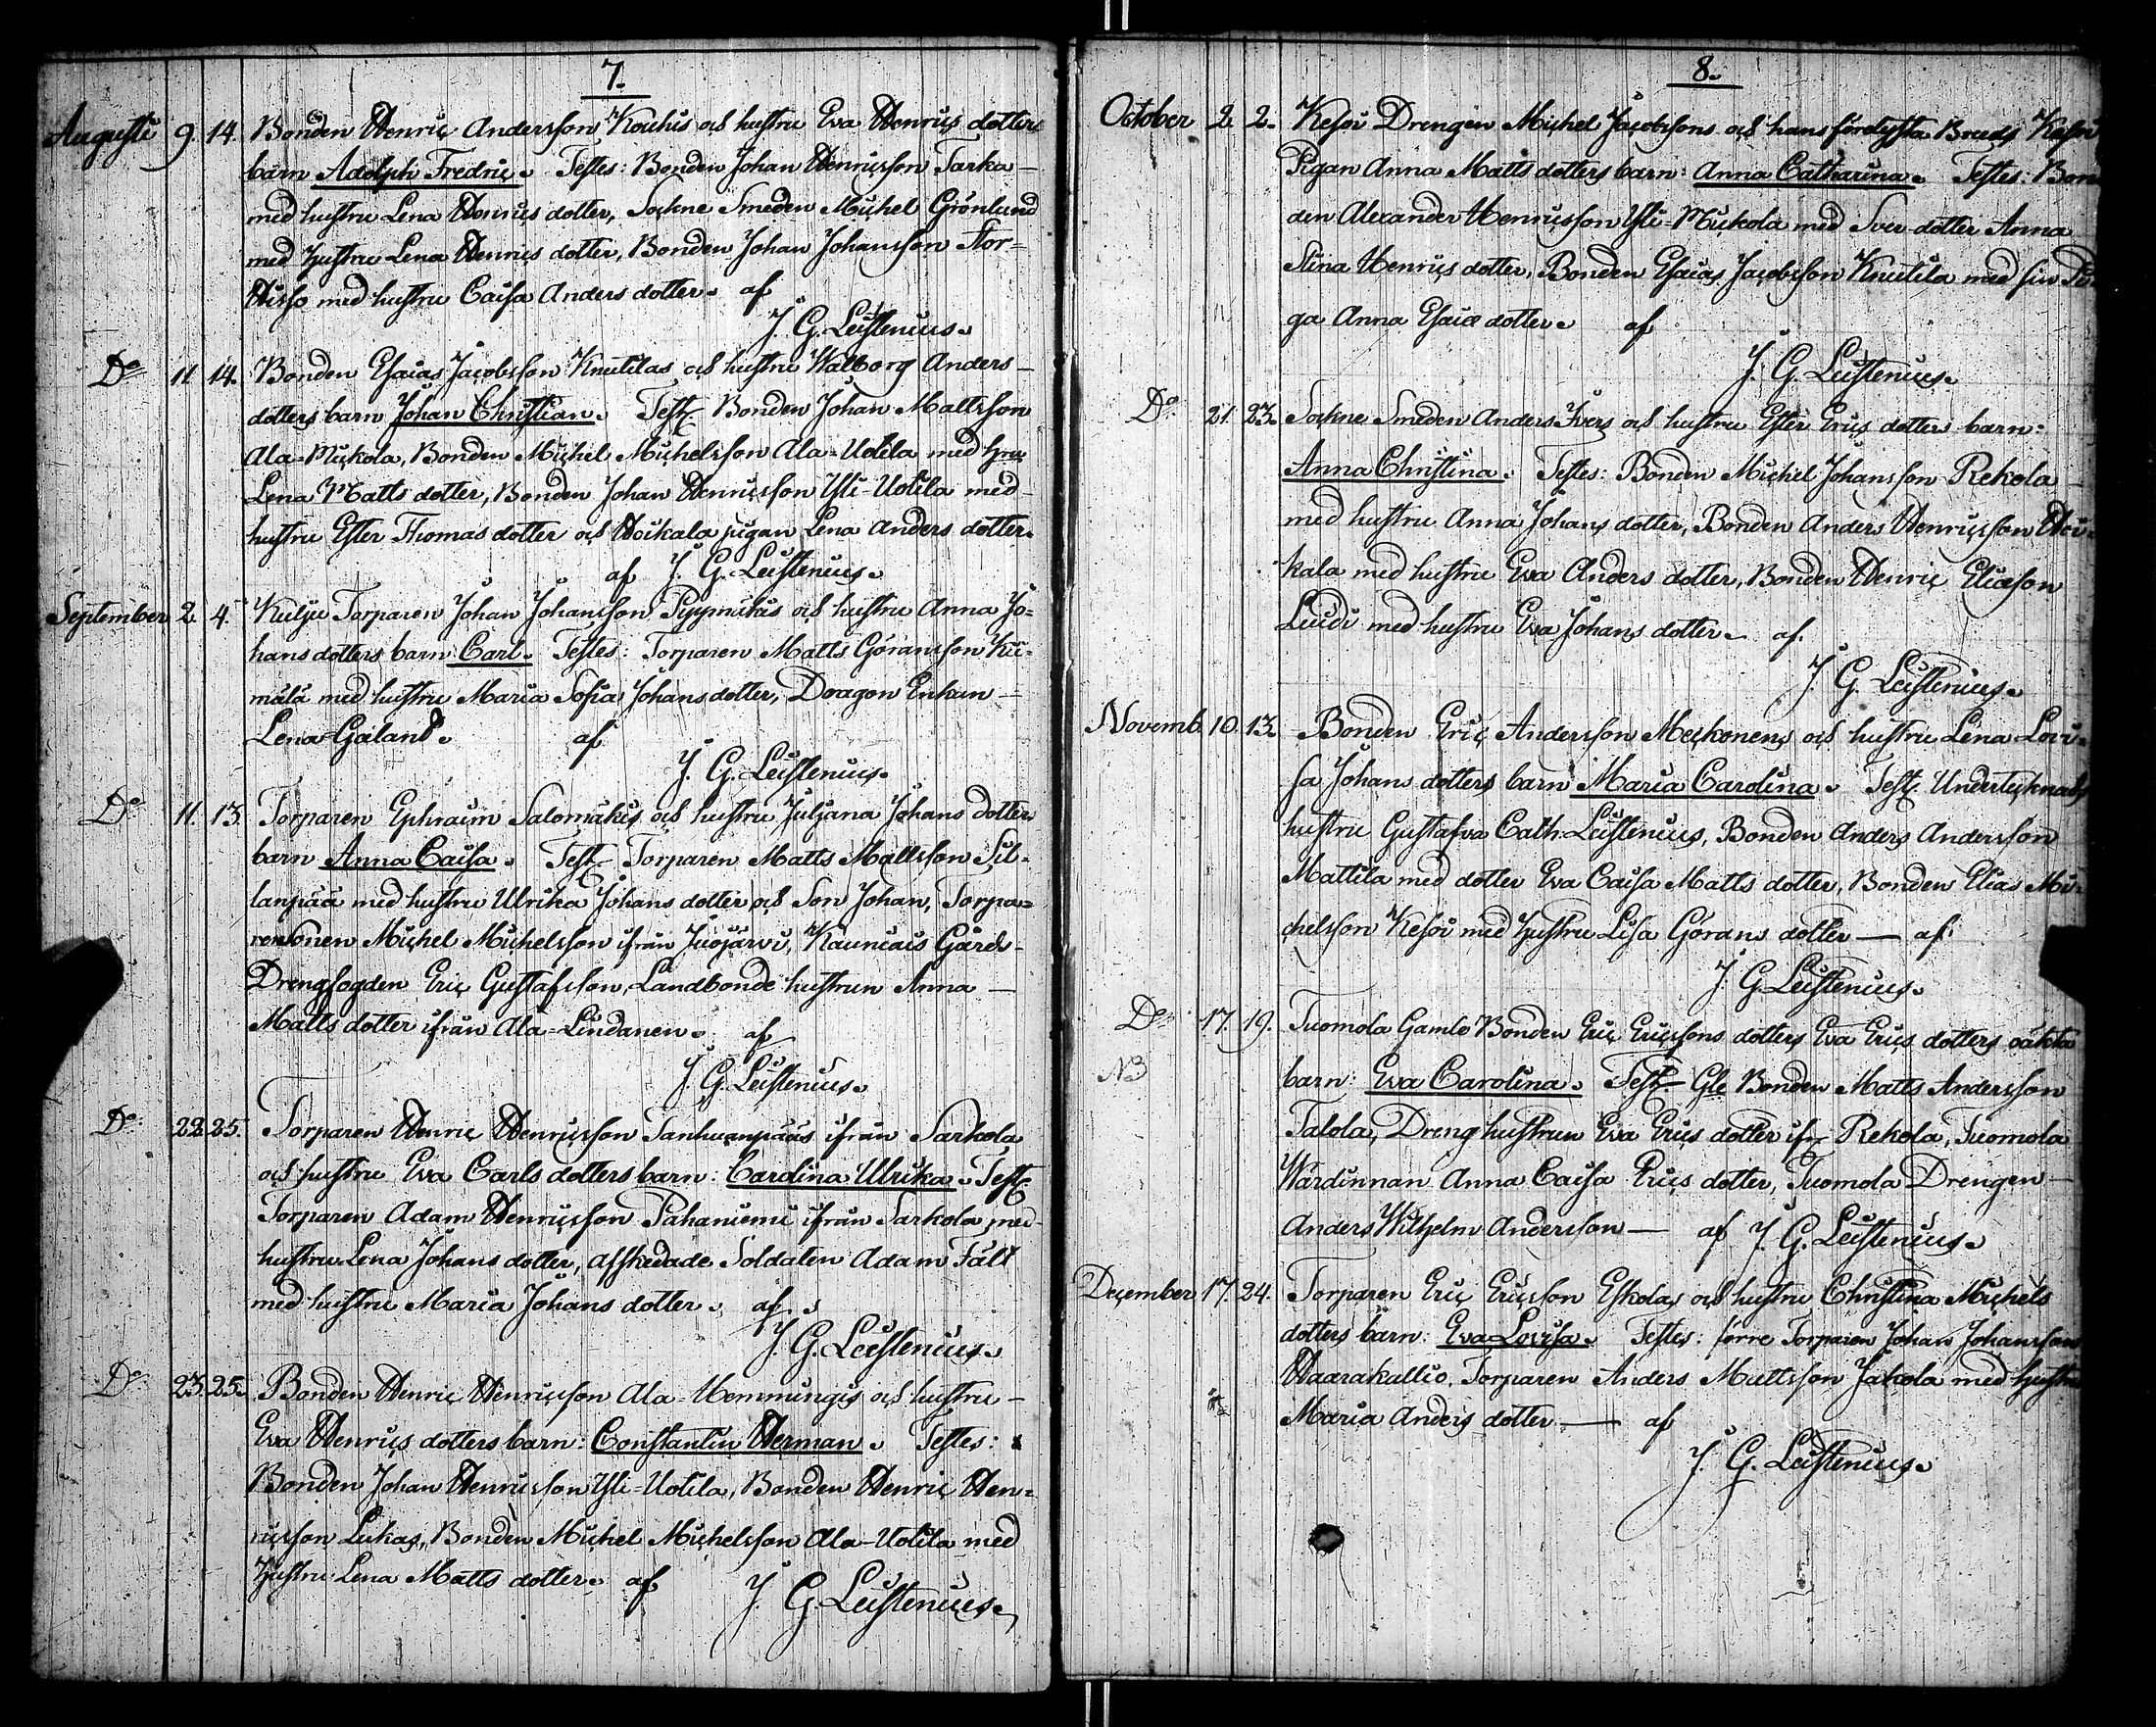 7.
Augusti 9. 14. Bonden Henric Andersson Kouhis och hustru Eva Henrics dotters
barn Adolph Fredric. Testes: Bonden Johan Henricsson Tarka
med hustru Lena Henrics dotter, Sockne Smeden Michel Grönlund
med hustru Lena Henrics dotter, Bonden Johan Johansson Stor-
Hisso med hustru Caisa Anders dotter. af
J. G. Leistenius.
Do 11. 14. Bonden Esaias Jacobsson Knutilas och hustru Walborg Anders
dotters barn Johan Christian. Test. Bonden Johan Mattsson
Ala-Mickola, Bonden Michel Michelsson Ala-Uotila med hru
Lena Matts dotter, Bonden Johan Henricsson Yli-Uotila med
hustru Ester Thomas dotter och Hoikala pigan Lena Anders dotter.
af J. G. Leistenius.
September 2. 4. Kulju Torparen Johan Johansson Pyymäkis och hustru Anna Jo-
hans dotters barn Carl. Testes: Torparen Matts Göransson Kii-
mälä med hustru Maria Sofia Johans dotter, Dragon Enkan
Lena Galand. af
J. G. Leistenius.
Do 11. 13. Torparen Ephraim Salomäkis och hustru Juljana Johans dotters
barn Anna Caisa. Test. Torparen Matts Mattsson Sil-
lanpää med hustru Ulrika Johans dotter och Son Johan, Torpa-
resonen Michel Michelsson ifrån Juojärvi, Kauniais Gårds-
Drengfogden Eric Gustafsson, Landbonde hustrun Anna
Matts dotter ifrån Ala-Lindanen. af
J. G. Leistenius.
Do 22. 25. Torparen Henric Henricsson Tanhuanpääs ifrån Sarkola
och hustru Eva Carls dotters barn: Carolina Ulrika. Test.
Torparen Adam Henricsson Pahaniemi ifrån Sarkola med
hustru Lena Johans dotter, afskedade Soldaten Adam Fält
med hustru Maria Johans dotter. af
J. G. Leistenius.
Do 23. 25. Bonden Henric Henricsson Ala-Hemmingis och hustru
Eva Henrics dotters barn: Constantin Herman. Testes:
Bonden Johan Henricsson Yli-Uotila, Bonden Henric Hen-
ricsson Lukas, Bonden Michel Michelsson Ala-Uotila med
hustru Lena Matts dotter. af J. G. Leistenius.
8.
October 2. 2. Kesoi Drengen Michel Jacobssons och hans fördrysta Bruds Kesoi
Pigan Anna Matts dotters barn: Anna Catharina. Testes: Bon-
den Alexander Henricsson Yli-Mickola med Sver dotter Anna
Stina Henrics dotter, Bonden Esaias Jacobsson Knutila med sin Pi-
ga Anna Esaiæ dotter. af
J. G. Leistenius.
Do 21. 23. Sockne Smeden Anders Ivers och hustru Ester Erics dotters barn:
Anna Christina. Testes: Bonden Michel Johansson Rekola
med hustru Anna Johans dotter, Bonden Anders Henricsson Hoi-
kala med hustru Eva Anders dotter, Bonden Henric Eliæson
Luidi med hustru Eva Johans dotter. af
J. G. Leistenius.
Novemb. 10. 13. Bonden Eric Andersson Meckonens och hustru Lena Lovi-
sa Johans dotters barn Maria Carolina. Test. Undertecknads
hustru Gustafva Cath. Leistenius, Bonden Anders Andersson
Mattila med dotter Eva Caisa Matts dotter, Bonden Elias Mi-
chelsson Kesoi med hustru Lisa Görans dotter — af
J. G. Leistenius.
Do 17. 19. Tuomola Gamle Bonden Eric Ericssons dotters Eva Erics dotters oäkta
NB barn: Eva Carolina. Test. Gle Bonden Matts Andersson
Talola, Dreng hustrun Eva Erics dotter ifr Rekola, Tuomola
Wärdinnan Anna Caisa Erics dotter, Tuomola Drengen
Anders Wilhelm Andersson — af J. G. Leistenius.
December 17. 24. Torparen Eric Ericsson Eskolas och hustru Christina Michels
dotters barn: Eva Lovisa. Testes: förre Torparen Johan Johansson
Haarakallio, Torparen Anders Mattsson Jakola med hustru
Maria Anders dotter — af
J. G. Leistenius.